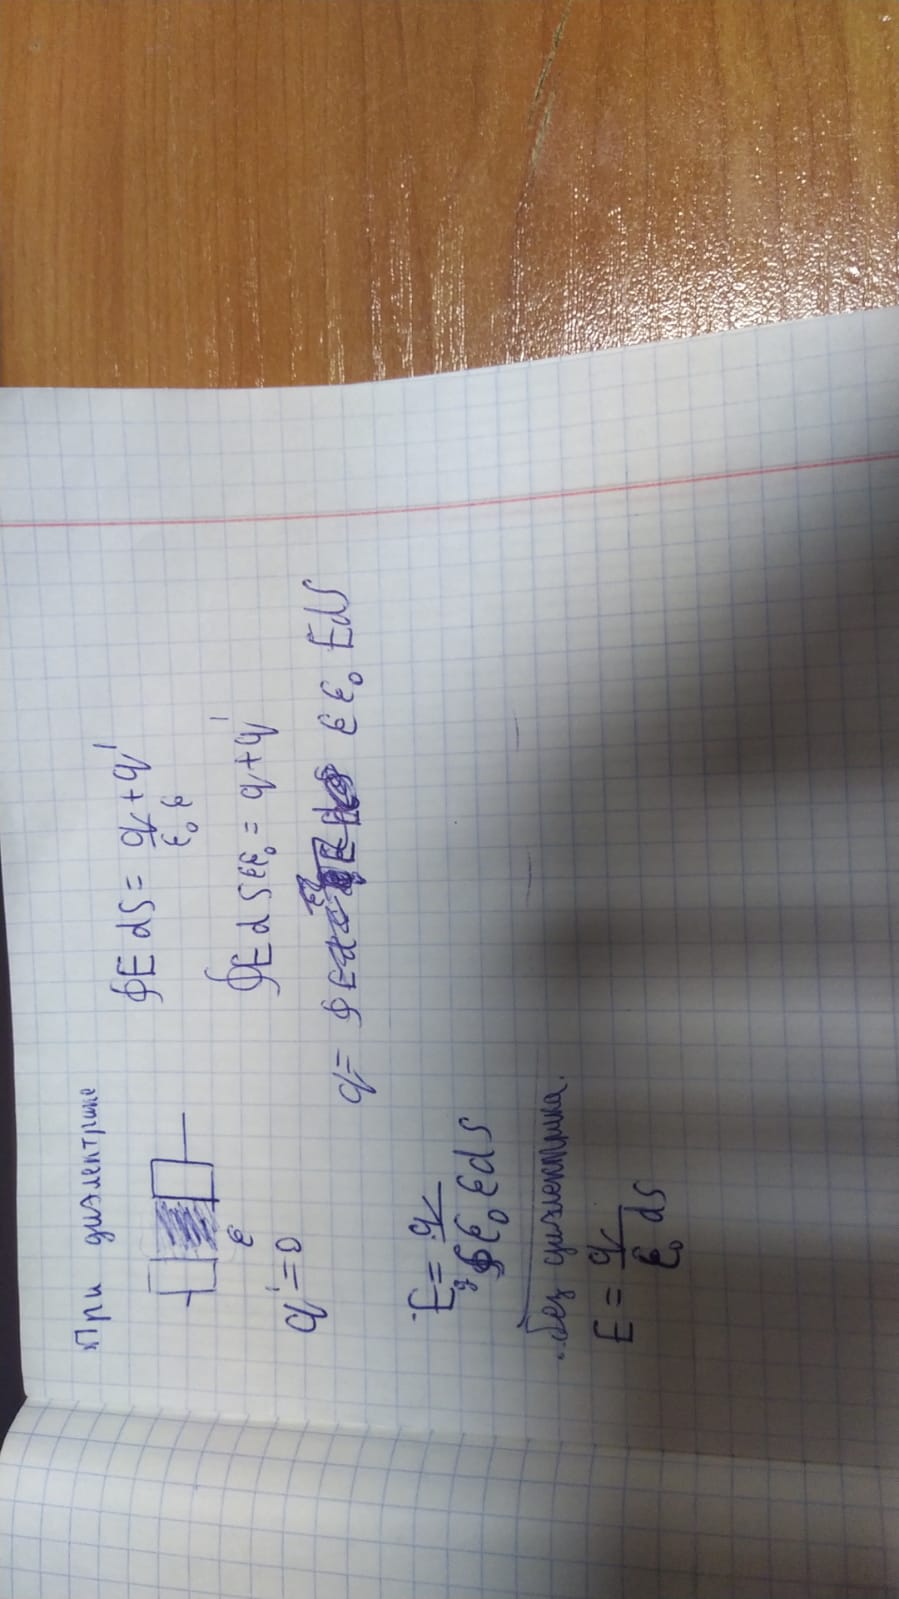 При диэлектрике
∮E dS = (q + q')/(ε₀ ε)
ε
∮E dS εε₀ = q + q'
q' = 0
q = ∮ εε₀ EdS
E = q/(∮ε₀ εdS)
без диэлектрика.
E = q/(ε₀ dS)